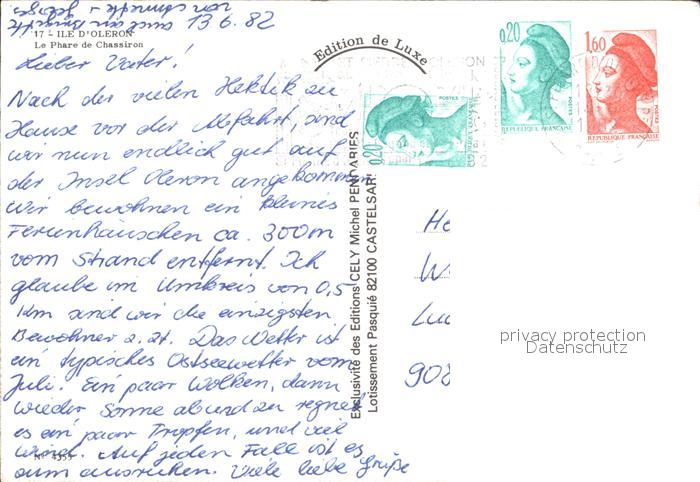 13.6.82
17 - ILE D'OLERON
Le Phare de Chassiron
Lieber Vater!
Nach der vielen Hektik zu
Hause vor der Abfahrt, sind
wir nun endlich gut auf
der Insel Oleron angekommen
Wir bewohnen ein kleines
Ferienhäuschen ca. 300m
vom Strand entfernt. Ich
glaube im Umkreis von 0,5
km sind wir die einzigsten
Bewohner z.Zt. Das Wetter ist
ein typisches Ostseewetter vom
Juli. Ein paar Wolken, dann
wieder Sonne ab und zu regnet
es ein paar Tropfen, und viel
Wind. Auf jeden Fall ist es
zum ausruhen. Viele liebe Grüße
Edition de Luxe
Exclusivité des Editions CELY Michel PENDARIES
Lotissement Pasquié 82100 CASTELSAR
0,20
POSTES
REPUBLIQUE FRANÇAISE
1,60
POSTES
REPUBLIQUE FRANÇAISE
0,20
POSTES
He
W
Lu
908
privacy protection
Datenschutz